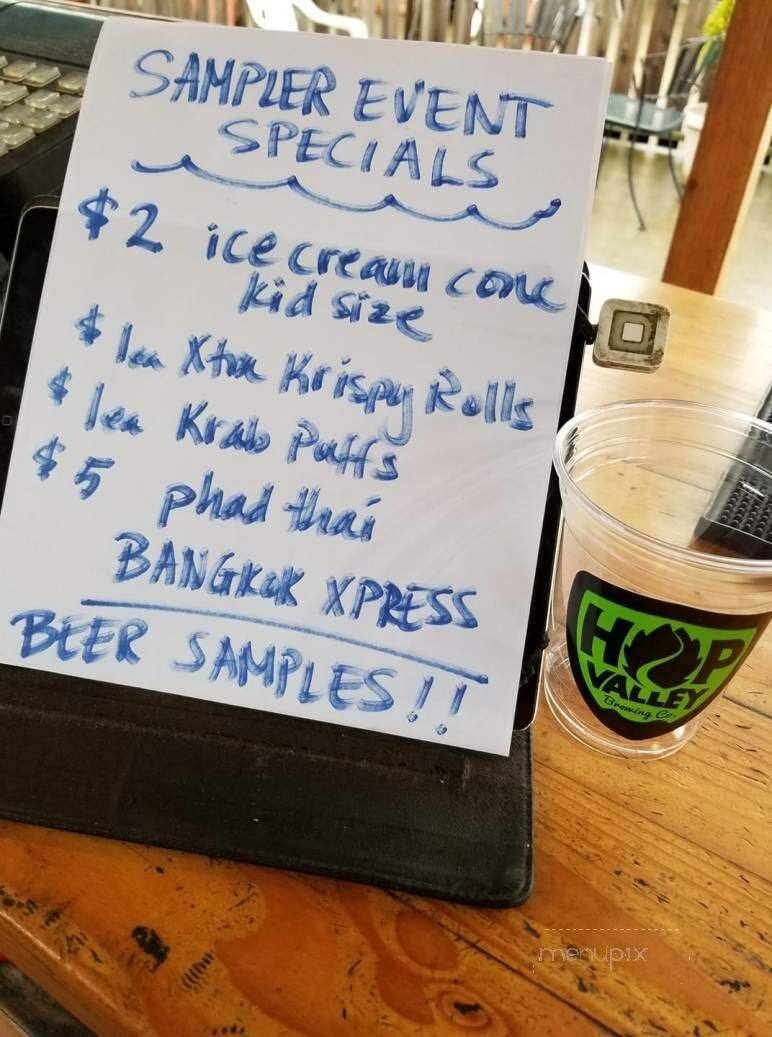 SAMPLER EVENT
SPECIALS
$2 ice cream cone
kid size
$1ea Xtra Krispy Rolls
$1ea Krab Puffs
$5 phad thai
BANGKOK XPRESS
BEER SAMPLES!!
HOP
VALLEY
Brewing Co.
menupix